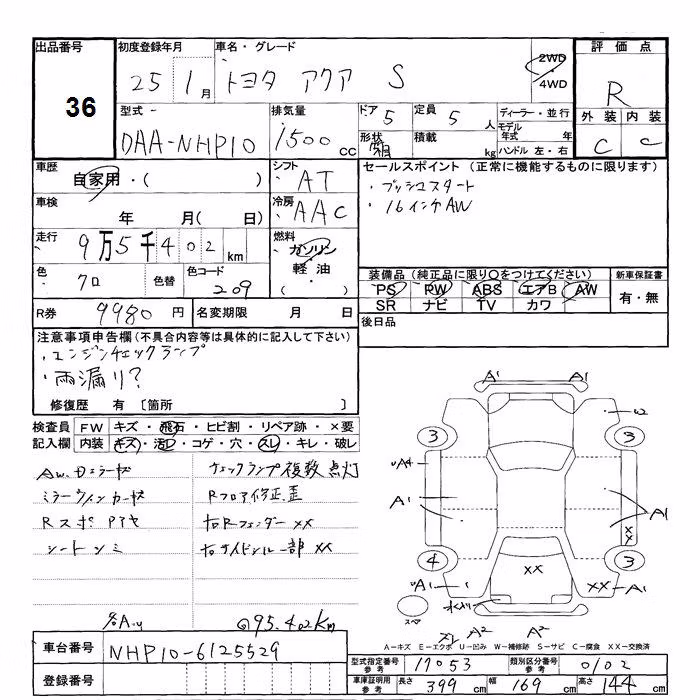 出品番号 初度登録年月 車名・グレード 評価点
36 25 1月 トヨタ アクア S 2WD 4WD R
型式 排気量 ドア 5 定員 5人 ディーラー・並行 外装 内装
DAA-NHP10 1500cc 形状 箱 積載 kg モデル年式 年 ハンドル 左・右 C C
車歴 シフト セールスポイント (正常に機能するものに限ります)
自家用・( ) AT ・プッシュスタート
車検 年 月( 日) 冷房 AAC ・16インチAW
走行 9万5千402km 燃料 ガソリン・軽油・( )
色 クロ 色替 色コード 209 装備品 (純正品に限り○をつけてください) 新車保証書
PS PW ABS エアB AW 有・無
SR ナビ TV カワ
R券 9980円 名変期限 月 日 後日品
注意事項申告欄 (不具合内容等は具体的に記入して下さい)
・エンジンチェックランプ
・雨漏り?
修復歴 有 [箇所 ]
検査員 FW キズ・飛石・ヒビ割・リペア跡・×要
記入欄 内装 キズ・汚レ・コゲ・穴・スレ・キレ・破レ
チェックランプ複数点灯
Rフロア修正歪
シートシミ
右Rフェンダー XX
右サイドシル一部 XX
A1 A1
W
3 3
A1 A1
XX
4 3
A1 XX XX A1
スペア
A2 A2
95.402km
A=キズ E=エクボ U=凹み W=補修跡 S=サビ C=腐食 XX=交換済
車台番号 NHP10-6125529
登録番号
型式指定番号 参考 17053 類別区分番号 参考 0102
車庫証明用 参考 長さ 399cm 幅 169cm 高さ 144cm